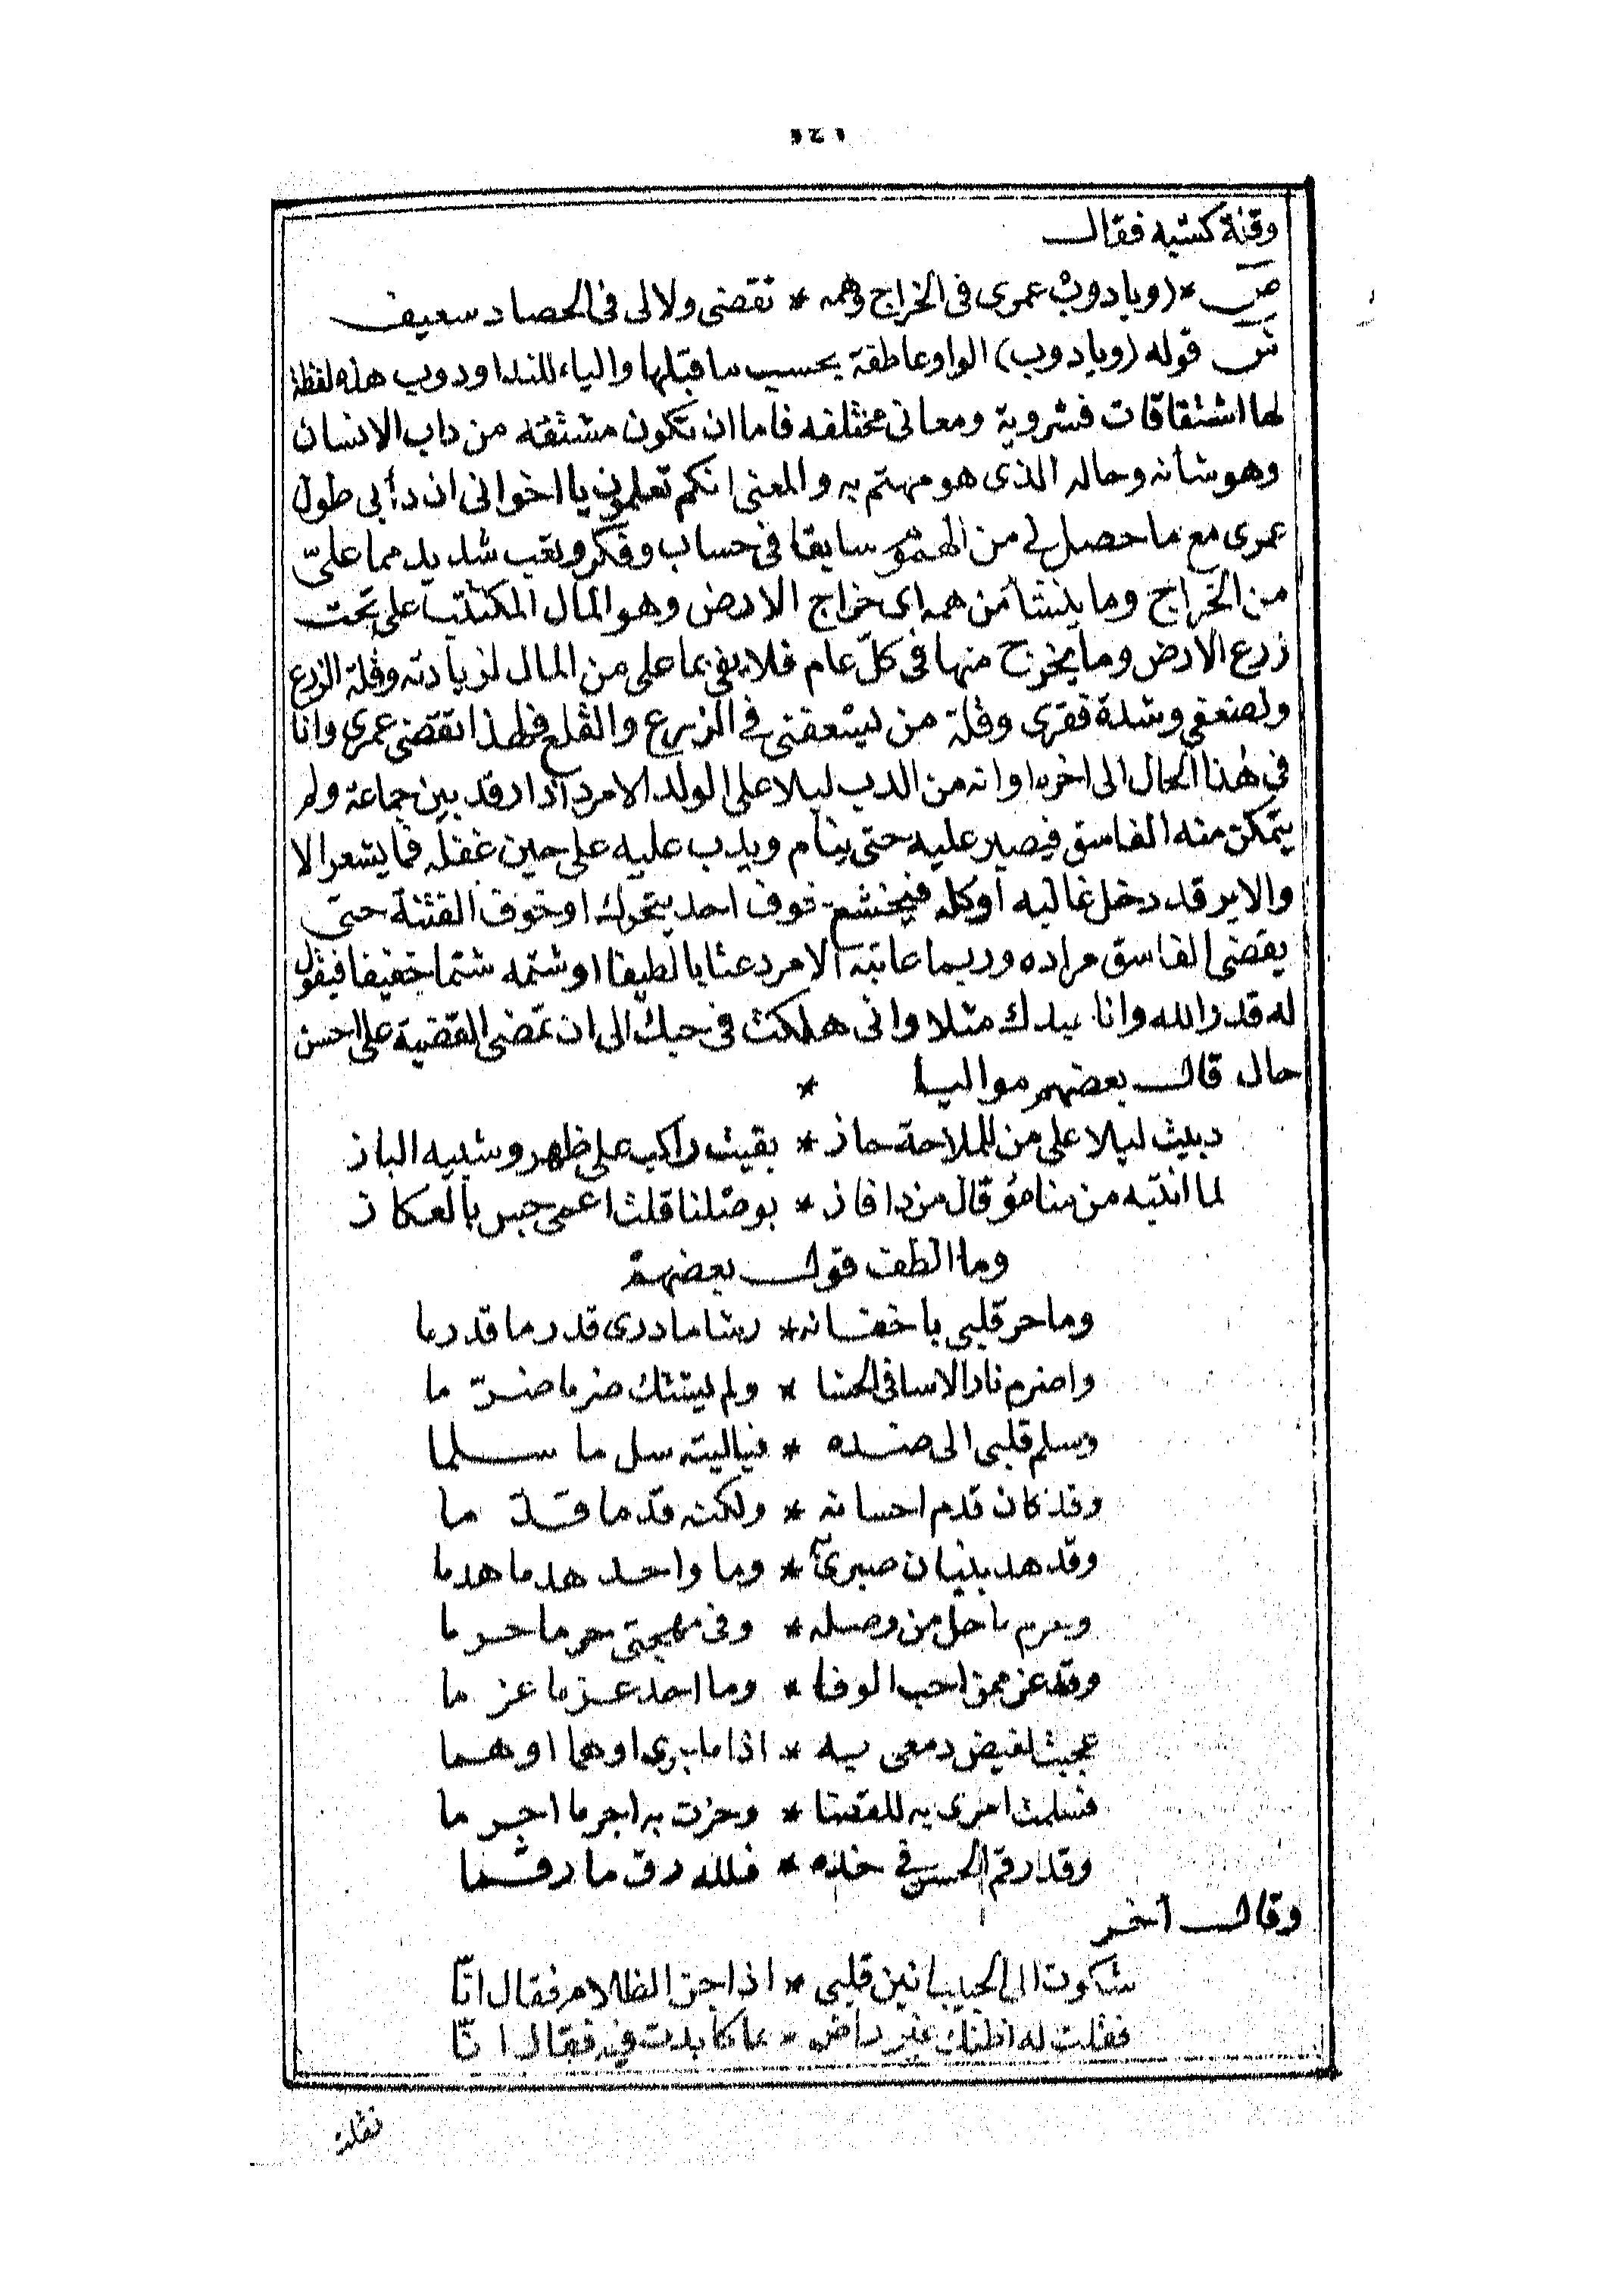 وقلة كسبه فقال
ص * (ويادوب عمرى فى الخراج وهمه * تقضى ولا لى فى الحصاد سعيف
ش قوله (ويادوب) الواو عاطفة بحسب ما قبلها والياء للندا ودوب هذه لفظة
لها اشتقاقات فشروية ومعانى مختلفه فاما ان تكون مشتقه من داب الانسان
وهو شانه وحاله الذى هو مهتم به والمعنى انكم تعلمون يا اخوانى ان دأبى طول
عمرى مع ما حصل لى من الهموم سابقا فى حساب وفكر وتعب شديد مما علىّ
من الخراج وما ينشأ من همه اى خراج الارض وهو المال المكتتب على تحت
زرع الارض وما يخرج منها فى كلّ عام فلا يفى بما على من المال لزيادته وقلة الزرع
ولضعفى وشدة فقرى وقلة من يسعفنى فى الزرع والقلع فلهذا تقضى عمرى وانا
فى هذا الحال الى اخره او انه من الدب ليلا على الولد الامرد اذا رقد بين جماعة ولم
يتمكن منه الفاسق فيصبر عليه حتى ينام ويدب عليه على حين غفله فما يشعر الا
والاير قد دخل غالبه او كله فيخشى خوف احد يتحرك او خوف الفتنة حتى
يقضى الفاسق مراده وربما عاتبه الامرد عتابا لطيفا او شتمه شتما خفيفا فيقول
له قدر الله وانا بيدك مثلا وانى هلكت فى حبك الى ان تمضى القضية على احسن
حال قال بعضهم مواليا *
دبيت ليلا على من للملاحة حاز * بقيت راكب على ظهرو شبيه الباز
لما انتبه من منامو قال من دا فاز * بوصلنا قلت اعمى جس بالعكاز
وما الطف قول بعضهم
وما حر قلبى باخفانه * رشا ما درى قدر ما قد رما
واضرم نار الاسا فى الحشا * ولم يشتك ضر ما ضرّ ما
وسلم قلبى الى صده * فياليته سل ما سلما
وقد كان قدم احسانه * ولكنه قد ما قدّ ما
وقد هد بنيان صبرى * وما واحد هد ما هدما
وحرم ما حل من وصله * وفى مهجتى حر ما حر ما
وقد عز ممن احب الوفا * وما احد عز ما عز ما
عجبت لفيض دمعى به * اذا ما اوهما اوهما
فسلمت امرى به للقضا * وحزت به اجر ما اجر ما
وقد رقم الحسن فى خده * فلله رق ما رقما
وقال اخر
شكوت الى الحبيب انين قلبى * اذا جن الظلام فقال انّا
فقلت له اظنك غير راض * بما كابدت فيه فقال انّا
فقلت